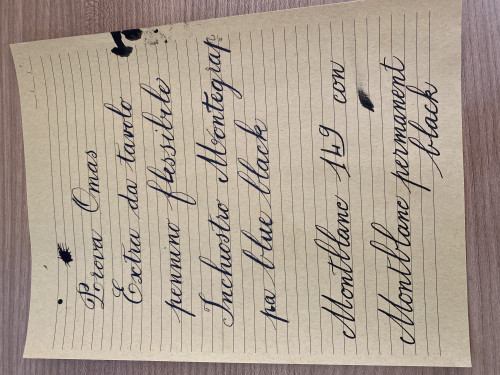 Prova Omas
Extra da tavolo
pennino flessibile
Inchiostro Montegrap
pa blue black
Montblanc 149 con
Montblanc permanent
black